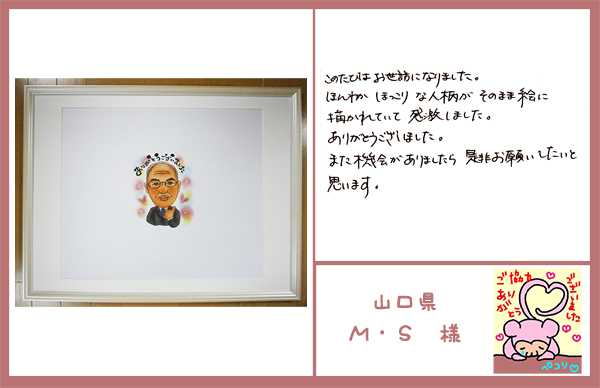 ありがとうございました
このたびは お世話になりました。
ほんわか ほっこり な人柄が そのまま絵に
描かれていて 感激しました。
ありがとうございました。
また機会がありましたら 是非お願いしたいと
思います。
山口県
M・S 様
ご協力
ありがとう
ございました
ペコリ